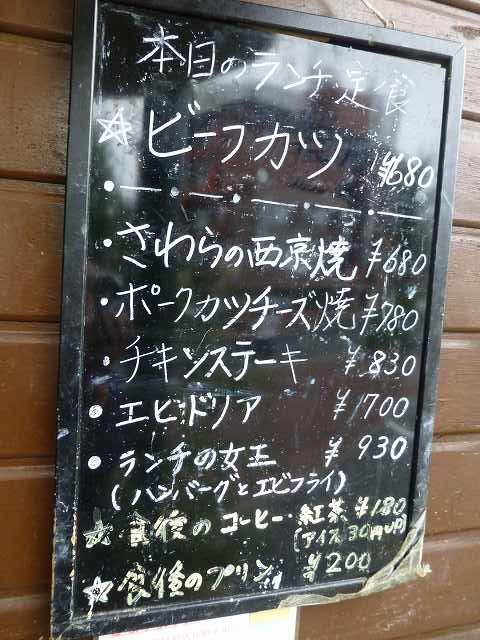 本日のランチ定食
☆ビーフカツ ¥680
・さわらの西京焼 ¥680
・ポークカツチーズ焼 ¥780
・チキンステーキ ¥830
・エビドリア ¥700
・ランチの女王 ¥930
(ハンバーグとエビフライ)
☆食後のコーヒー・紅茶 ¥180
(アイス30円UP)
☆食後のプリン ¥200